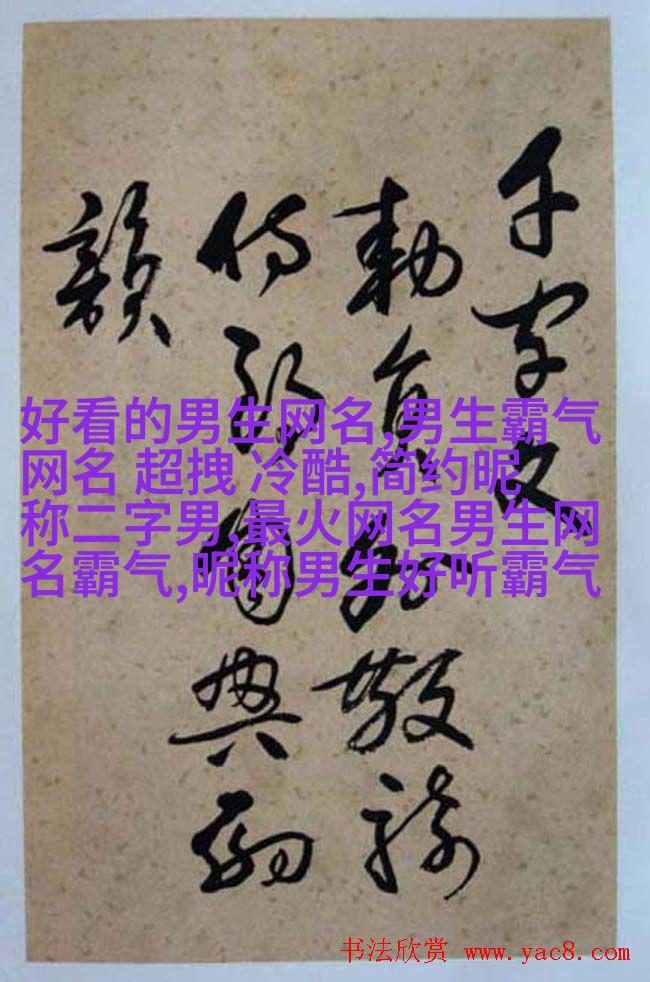 千字文
勅員外散騎
侍郎周興嗣
韻
好看的男生网名,男生霸气
网名 超拽 冷酷,简约昵
称二字男,最火网名男生网
名霸气,昵称男生好听霸气
书法欣赏 www.yac8.com